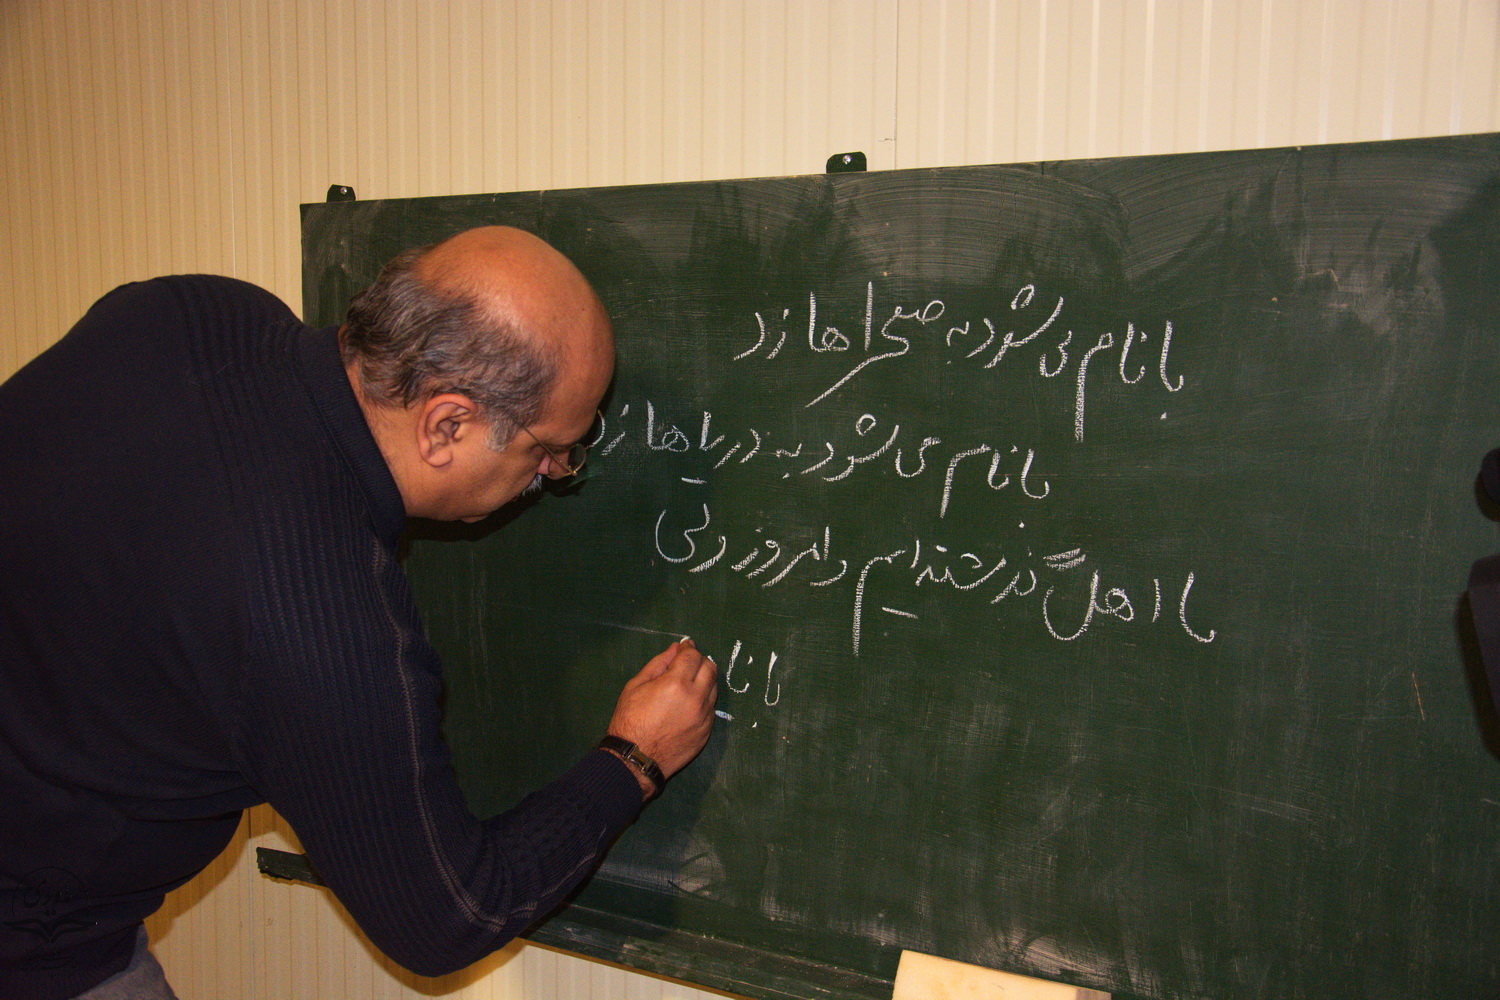 با نام می شود به صحراها زد
با نام می شود به دریاها زد
ما اهل گذشته ایم و امروز ولی
با